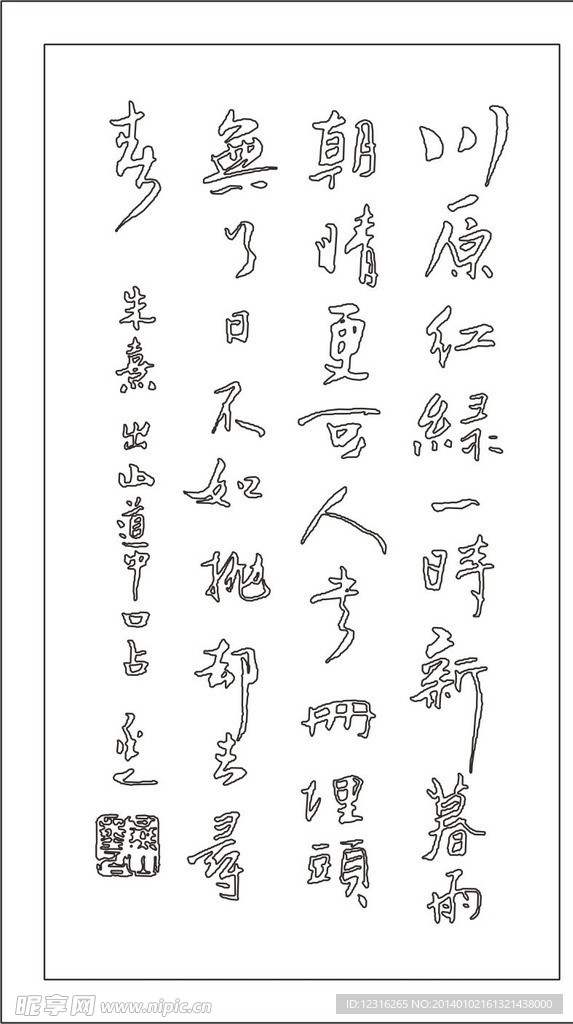 川原红綠一時新暮雨
朝晴更可人書冊埋頭
無了日不如抛却去尋
春
朱熹出山道中口占
昵享网 www.nipic.cn
ID:12316265 NO:20140102161321438000